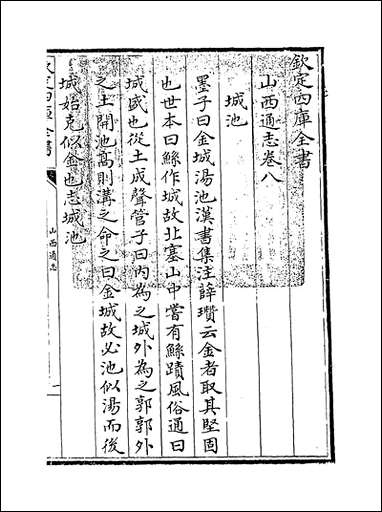 欽定四庫全書
山西通志卷八
城池
墨子曰金城湯池漢書集注薛瓚云金者取其堅固
也世本曰鯀作城故北塞山中嘗有鯀蹟風俗通曰
城盛也從土成聲管子曰内為之城外為之郭郭外
之土開池高則溝之命之曰金城故必池似湯而後
城始克似金也志城池
欽定四庫全書
山西通志
一